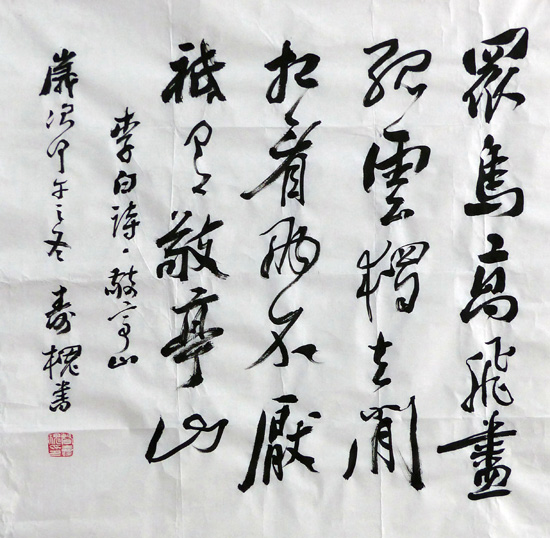 眾鳥高飛盡
孤雲獨去閒
相看兩不厭
祗有敬亭山
李白詩·敬亭山
歲次甲午之冬 壽槐書